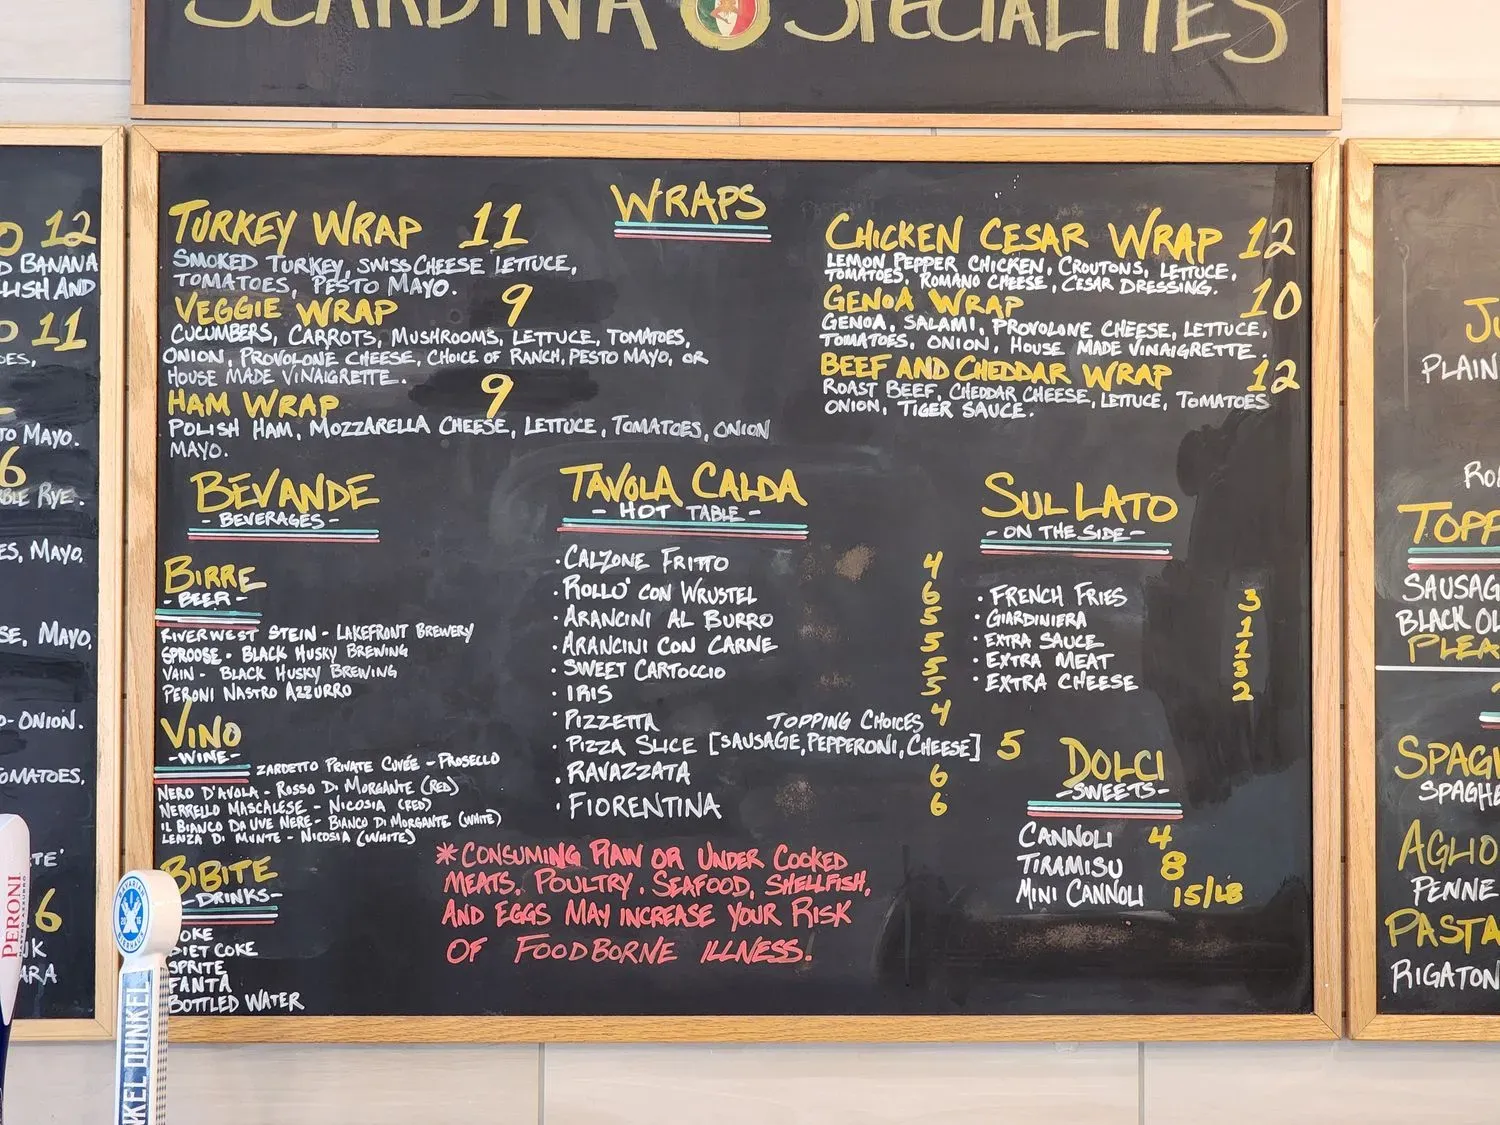 SCARDINA SPECIALITIES
WRAPS
TURKEY WRAP 11
SMOKED TURKEY, SWISS CHEESE LETTUCE,
TOMATOES, PESTO MAYO.
VEGGIE WRAP 9
CUCUMBERS, CARROTS, MUSHROOMS, LETTUCE, TOMATOES,
ONION, PROVOLONE CHEESE, CHOICE OF RANCH, PESTO MAYO, OR
HOUSE MADE VINAIGRETTE.
HAM WRAP 9
POLISH HAM, MOZZARELLA CHEESE, LETTUCE, TOMATOES, ONION
MAYO.
CHICKEN CESAR WRAP 12
LEMON PEPPER CHICKEN, CROUTONS, LETTUCE,
TOMATOES, ROMANO CHEESE, CESAR DRESSING.
GENOA WRAP 10
GENOA, SALAMI, PROVOLONE CHEESE, LETTUCE,
TOMATOES, ONION, HOUSE MADE VINAIGRETTE.
BEEF AND CHEDDAR WRAP 12
ROAST BEEF, CHEDDAR CHEESE, LETTUCE, TOMATOES
ONION, TIGER SAUCE.
BEVANDE
- BEVERAGES -
BIRRE
- BEER -
RIVERWEST STEIN - LAKEFRONT BREWERY
SPROOSE - BLACK HUSKY BREWING
VAIN - BLACK HUSKY BREWING
PERONI NASTRO AZZURRO
VINO
- WINE -
ZARDETTO PRIVATE CUVÉE - PROSELLO
NERO D'AVOLA - ROSSO DI MORGANTE (RED)
NERRELLO MASCALESE - NICOSIA (RED)
IL BIANCO DA UVE NERE - BIANCO DI MORGANTE (WHITE)
LENZA DI MUNTE - NICOSIA (WHITE)
BIBITE
- DRINKS -
COKE
DIET COKE
SPRITE
FANTA
BOTTLED WATER
TAVOLA CALDA
- HOT TABLE -
· CALZONE FRITTO 4
· ROLLO' CON WRUSTEL 6
· ARANCINI AL BURRO 5
· ARANCINI CON CARNE 5
· SWEET CARTOCCIO 5
· IRIS 5
· PIZZETTA 4
TOPPING CHOICES
· PIZZA SLICE [SAUSAGE, PEPPERONI, CHEESE] 5
· RAVAZZATA 6
· FIORENTINA 6
SUL LATO
- ON THE SIDE -
· FRENCH FRIES 3
· GIARDINIERA 1
· EXTRA SAUCE 1
· EXTRA MEAT 3
· EXTRA CHEESE 2
DOLCI
- SWEETS -
CANNOLI 4
TIRAMISU 8
MINI CANNOLI 15/LB
* CONSUMING RAW OR UNDER COOKED
MEATS, POULTRY, SEAFOOD, SHELLFISH,
AND EGGS MAY INCREASE YOUR RISK
OF FOODBORNE ILLNESS.
O 12
D BANANA
LISH AND
O 11
OES,
TO MAYO.
6
BLE RYE.
ES, MAYO.
SE, MAYO,
O-ONION.
TOMATOES,
6
ARA
JU
PLAIN
TOPP
SAUSAG
BLACK OL
PLEA
SPAG
SPAGHE
AGLIO
PENNE
PASTA
RIGATON
PERONI
NKEL DUNKEL